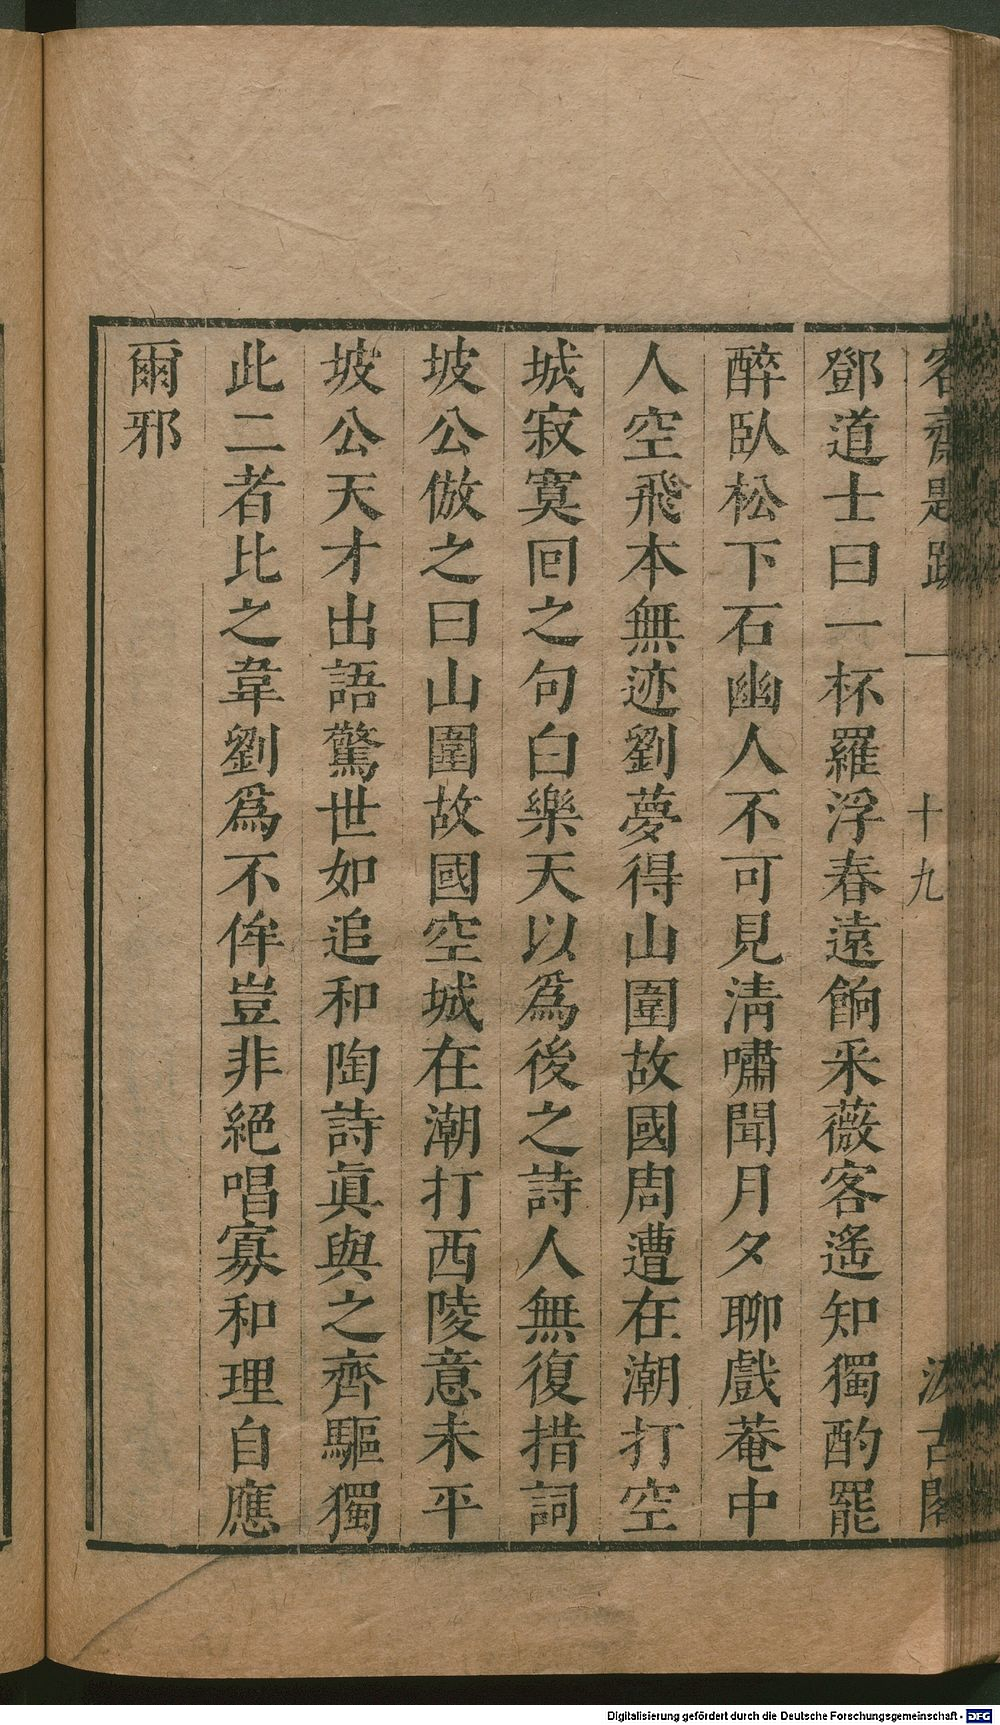 容齋題跋 一 十九 汲古閣
鄧道士曰一杯羅浮春遠餉采薇客遙知獨酌罷
醉臥松下石幽人不可見淸嘯聞月夕聊戲菴中
人空飛本無迹劉夢得山圍故國周遭在潮打空
城寂寞回之句白樂天以爲後之詩人無復措詞
坡公倣之曰山圍故國空城在潮打西陵意未平
坡公天才出語驚世如追和陶詩眞與之齊驅獨
此二者比之韋劉爲不侔豈非絕唱寡和理自應
爾邪
Digitalisierung gefördert durch die Deutsche Forschungsgemeinschaft - DFG